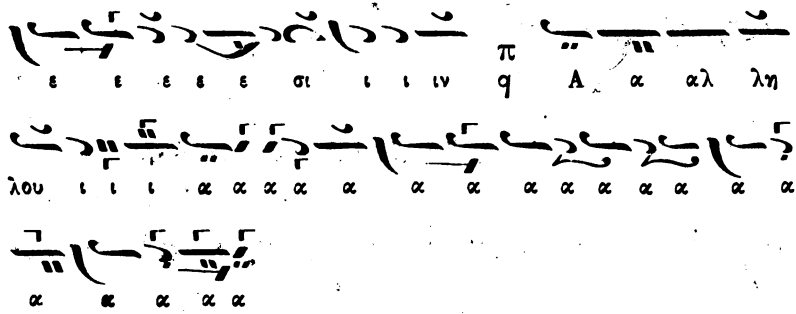 ε ε ε ε ε σι ι ι ιν π q Α α αλ λη
λου ι ι ι α α α α α α α α α α α α α α
α α α α α